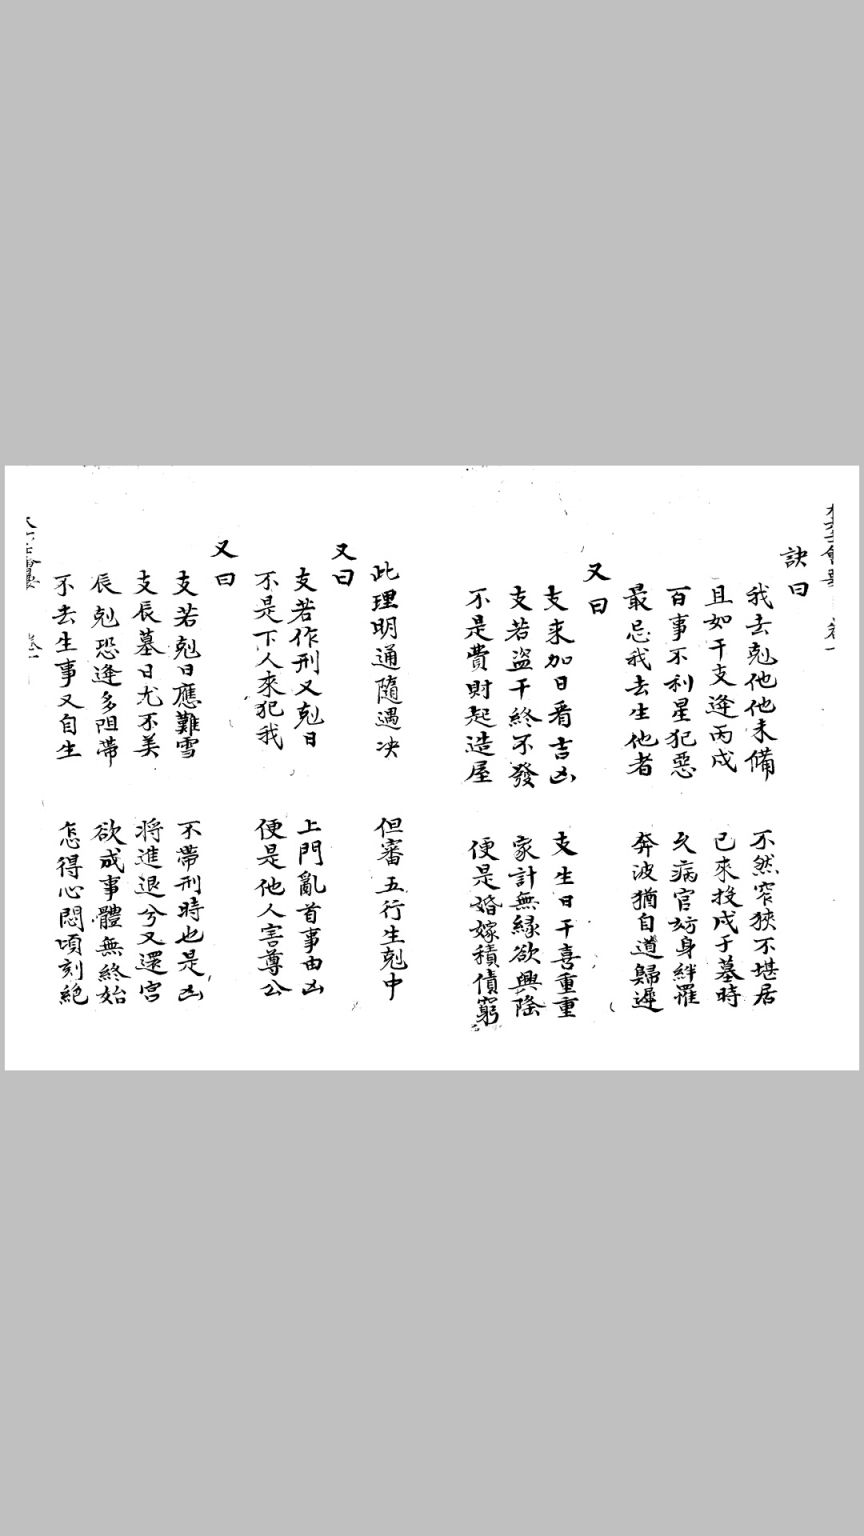 訣曰
我去剋他他未備　不然窄狹不堪居
且如干支逢丙戌　已來投戌于墓時
百事不利星犯惡　久病官妨身絆羅
最忌我去生他者　奔波猶自道歸遲
又曰
支来加日看吉凶　支生日干喜重重
支若盜干終不發　家計無緣欲興隆
不是費財起造屋　便是婚嫁積債窮
此理明通隨遇决　但審五行生剋中
又曰
支若作刑又剋日　上門亂首事由凶
不是下人來犯我　便是他人害尊公
又曰
支若剋日應難雪　不帶刑時也是凶
支辰墓日尤不美　将進退兮又還宫
辰剋恐逢多阻滞　欲成事體無終始
不去生事又自生　怎得心悶頃刻絕